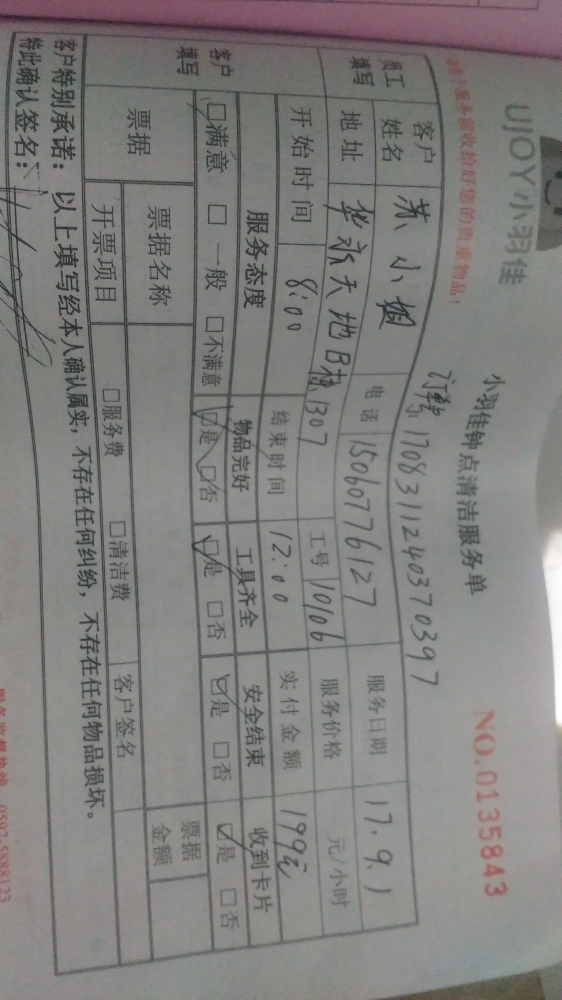 UJOY小羽佳
小羽佳钟点清洁服务单
NO.0135843
请于服务前收拾好您的贵重物品!
订单号: 170831124037 0397
员工填写 客户姓名 苏小姐 电话 15060776127 服务日期 17.9.1
地址 华永天地B栋1307 工号 10106 服务价格 元/小时
开始时间 8:00 结束时间 12:00 实付金额 199元
客户填写 服务态度 物品完好 工具齐全 安全结束 收到卡片
☑满意 □一般 □不满意 ☑是 □否 ☑是 □否 ☑是 □否 ☑是 □否
票据 票据名称 票据金额
开票项目 □服务费 □清洁费 客户签名
客户特别承诺:以上填写经本人确认属实,不存在任何纠纷,不存在任何物品损坏。
特此确认签名:
服务监督热线:0592-5888123